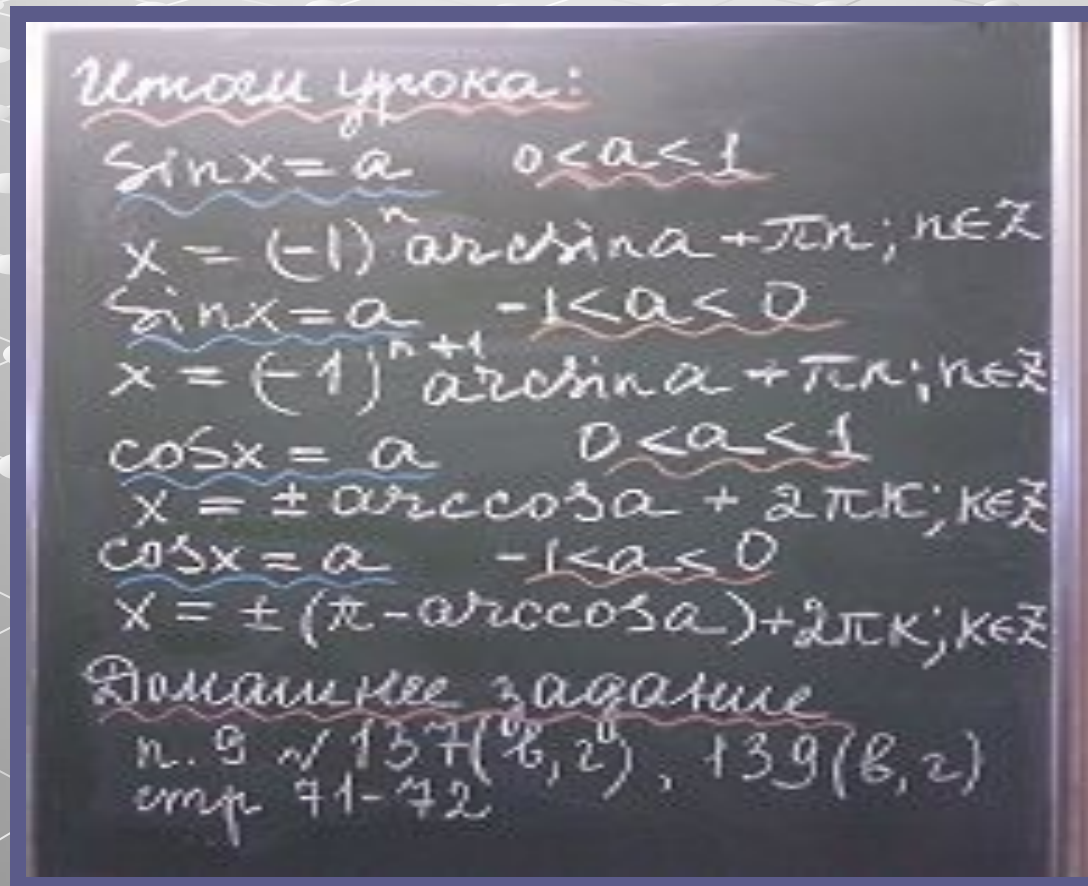 Итоги урока:
sinx = a 0<a<1
x = (-1)ⁿ arcsina + πn; n∈Z
sinx = a -1<a<0
x = (-1)ⁿ⁺¹ arcsina + πn; n∈Z
cosx = a 0<a<1
x = ± arccosa + 2πк; к∈Z
cosx = a -1<a<0
x = ± (π - arccosa) + 2πк; к∈Z
Домашнее задание
п. 9 √ 137(в, г), 139(в, г)
стр 71-72